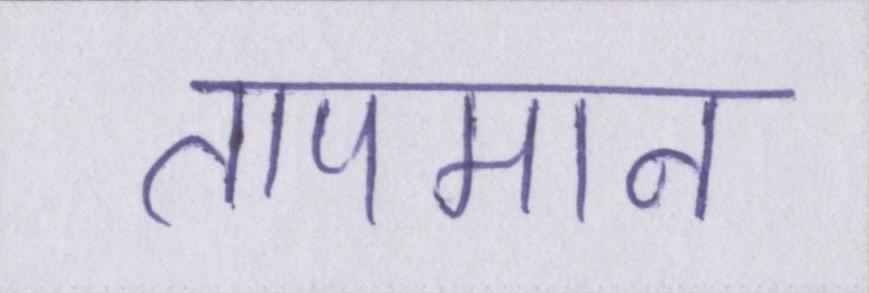 तापमान